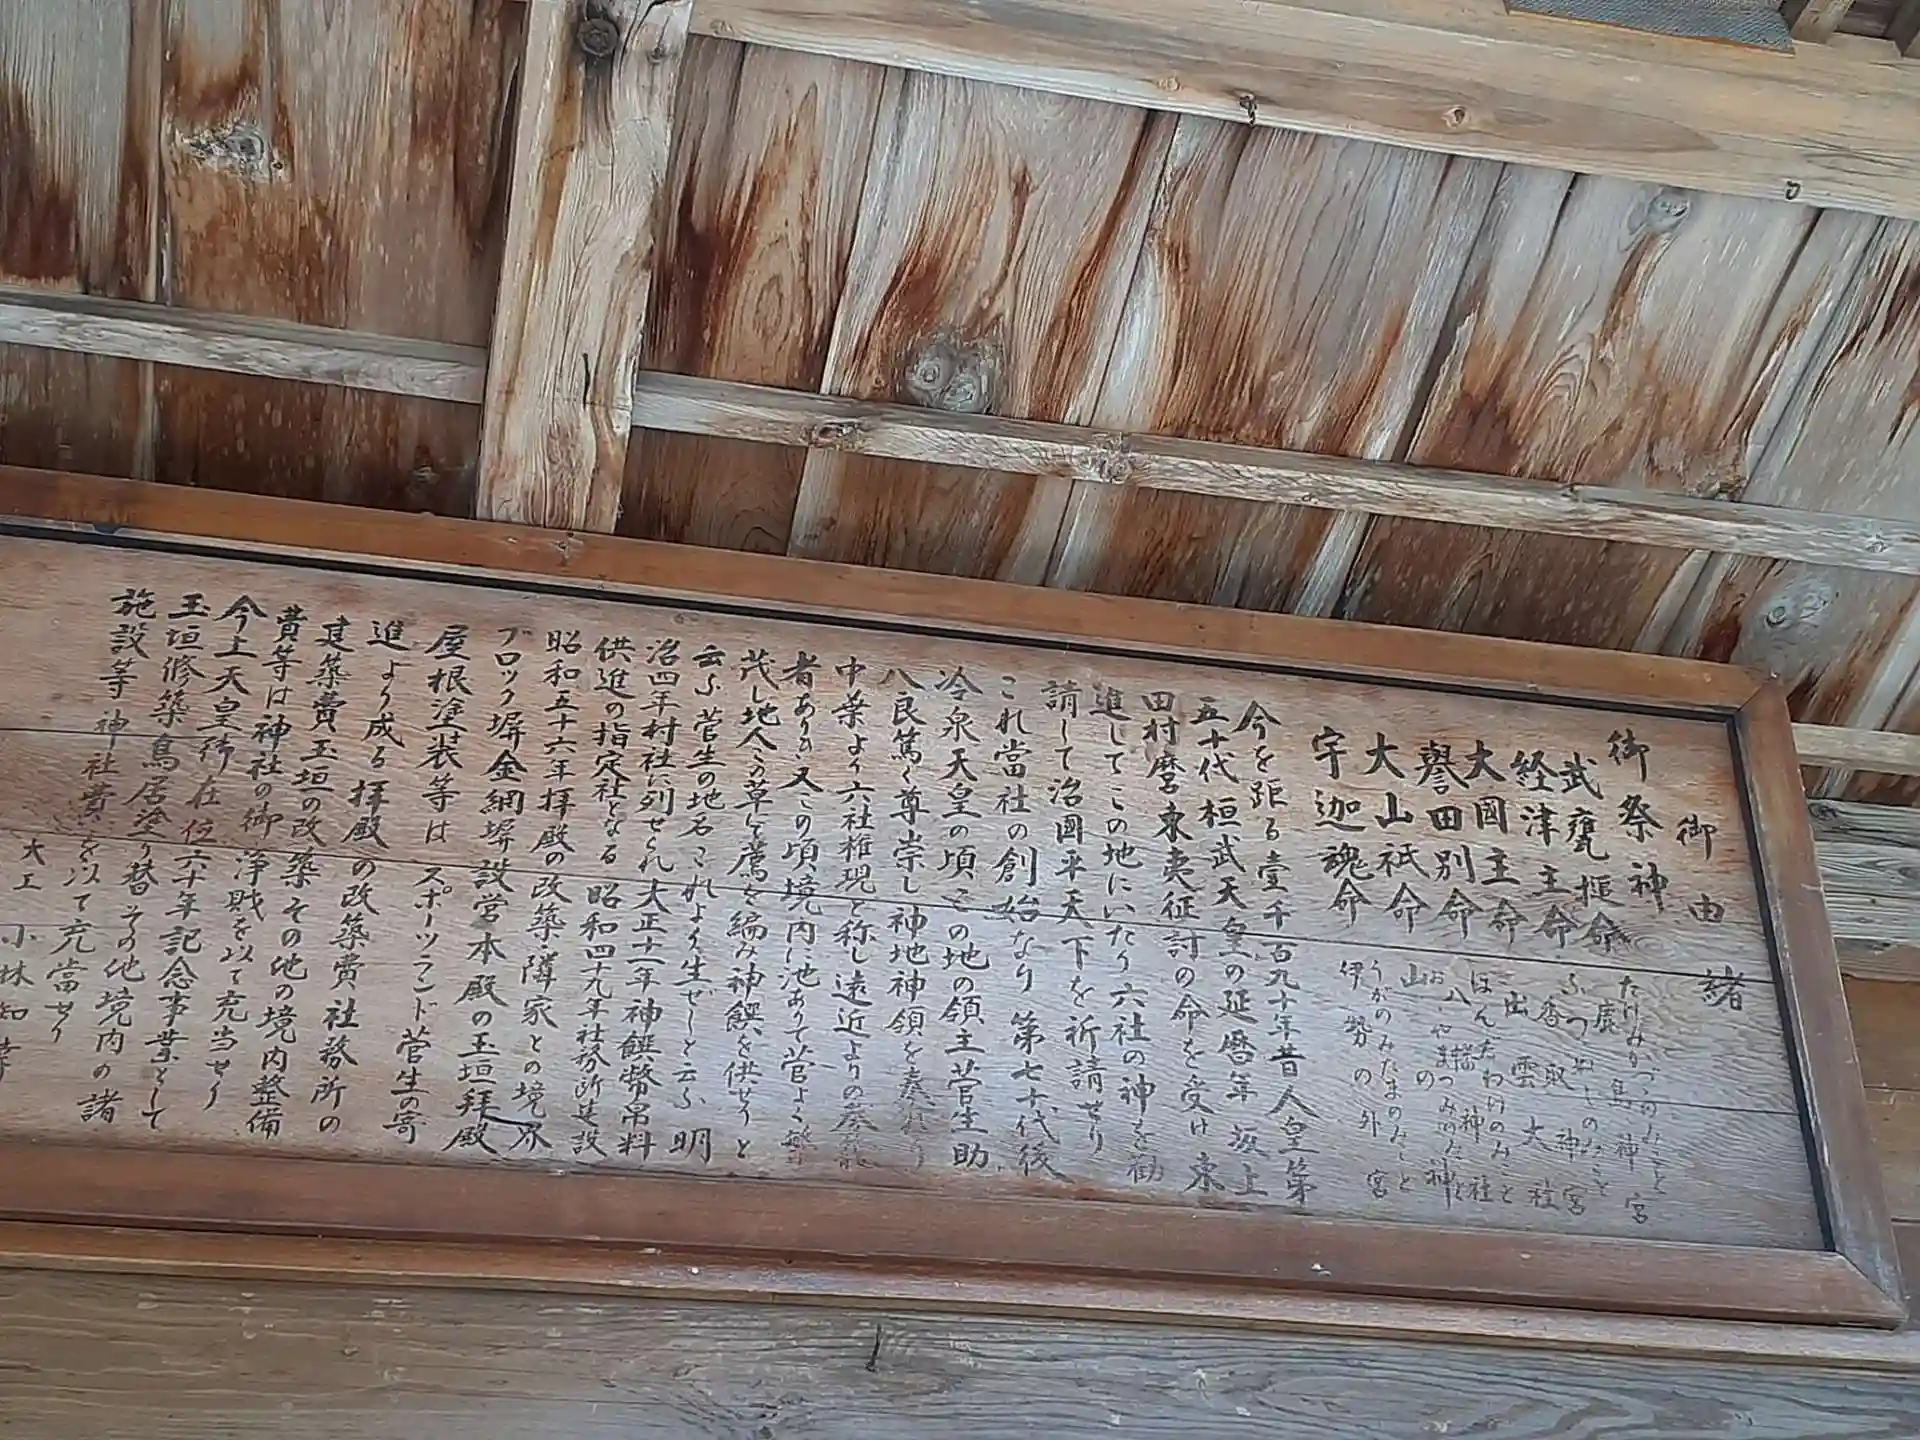 御由緒
御祭神
武甕槌命 たけみかづちのみこと 鹿島神宮
経津主命 ふつぬしのみこと 香取神宮
大國主命 出雲大社
譽田別命 ほんだわけのみこと 八幡神社
大山祇命 おおやまつみのみこと 山の神
宇迦魂命 うがのみたまのみこと 伊勢の外宮
今を距る壹千百九十年昔人皇第
五十代桓武天皇の延暦年坂上
田村麿東夷征討の命を受け東
進してこの地にいたり六社の神を勧
請して治國平天下を祈請せり
これ當社の創始なり 第七十代後
冷泉天皇の頃この地の領主菅生助
八良篤く尊崇し神地神領を奉れり
中葉より六社権現と称し遠近よりの
者ありき又この頃境内に池ありて菅よく繁
茂し地人この草して薦を編み神饌を供せりと
云ふ菅生の地名これより生ぜしと云ふ 明
治四年村社に列せられ大正十一年神饌幣帛料
供進の指定社となる 昭和四十九年社務所建設
昭和五十六年拝殿の改築隣家との境界
ブロック塀金網塀設営本殿の玉垣拝殿
屋根塗装等は スポーツランド菅生の寄
進より成る拝殿の改築費社務所の
建築費玉垣の改築その他の境内整備
費等は神社の御浄財を以て充当せり
今上天皇御在位六十年記念事業として
玉垣修築鳥居塗り替その他境内の諸
施設等神社費を以て充當せり
大工 小林